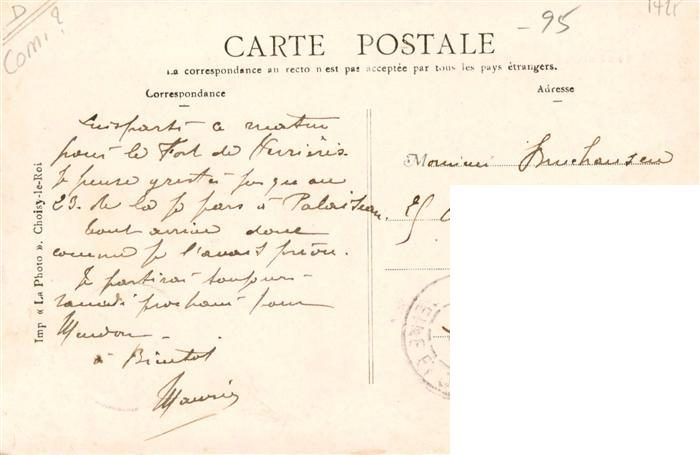 D
Com. ?
-95
CARTE POSTALE
La correspondance au recto n'est pas acceptée par tous les pays étrangers.
Correspondance
Adresse
Suis parti ce matin
pour le Fort de Verrières
Je pense y rester jusqu'au
23. de la je pars à Palaiseau.
Tout arrive donc
comme je l'avais prévu.
Je partirai toujours
samedi prochain pour
Meudon -
à Bientot
Maurice
Monsieur
Imp « La Photo ». Choisy-le-Roi